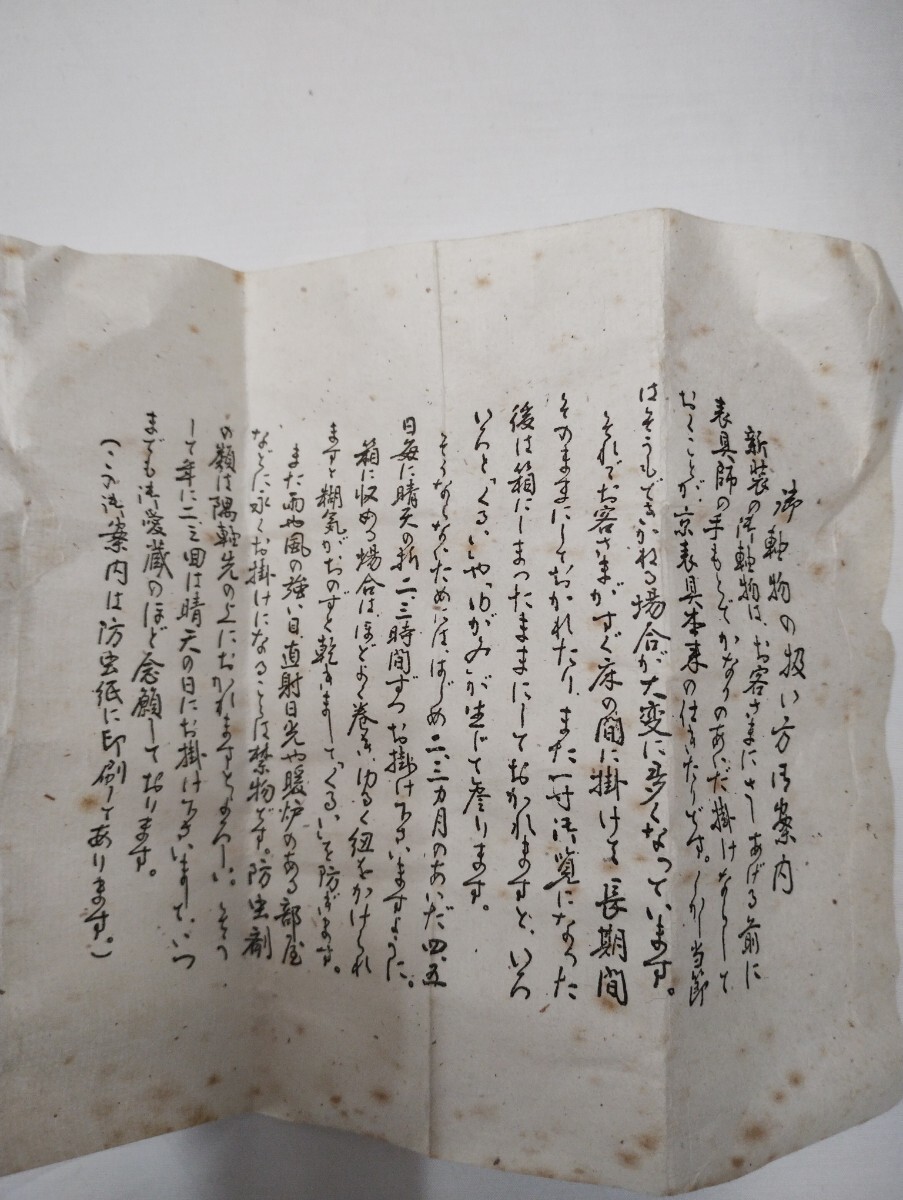 御軸物の扱い方御案内
新装の御軸物は、お客さまにさしあげる前に
表具師の手もとでかなりのあいだ掛けならして
おくことが、京表具本来の仕きたりです。しかし当節
はそうもできかねる場合が大変に多くなっています。
それでお客さまがすぐ床の間に掛けて長期間
そのままにしておかれたり、また一寸御覧になった
後は箱にしまったままにしておかれますと、いろ
いろと「くるい」や「ゆがみ」が生じて参ります。
そうならないためには、はじめ二、三カ月のあいだ四、五
日毎に晴天の折二、三時間ずつお掛け下さいますように。
箱に収める場合は、ほどよく巻き、ゆるく紐をかけられ
ますと糊気がおのずと乾きまして「くるい」を防ぎます。
また雨や風の強い日、直射日光や暖炉のある部屋
などに永くお掛けになることは禁物です。防虫剤
の類は隅軸先の上におかれますとよろしい。そう
して年に二、三回は晴天の日にお掛け下さいまして、いつ
までも御愛蔵のほど念願しております。
(この御案内は防虫紙に印刷してあります。)